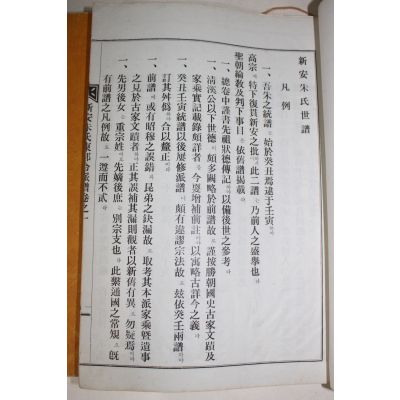 新安朱氏世譜
凡例
一、吾朱之統譜 始於癸丑焉逮于壬寅
高宗 特下復貫新安之批 此二譜 乃前人之盛擧也
一、總卷中謹書先祖狀德傳記 以備後世之參考
聖朝綸敎及判下事目 依舊譜揭載
一、淸溪公以下世德 頗多闕略於前譜故 謹按勝朝國史古家文蹟及
家乘實記載錄頗詳者 今爰增補前註 以寓略古詳今之義
一、癸丑壬寅統譜以後屢修派譜 頗有違謬宗法故 玆依癸壬兩譜
訂其舛僞 合以釐正
一、前譜 或有昭穆之誤錯 昆弟之缺漏故 取考其本派家乘曁遺事
之見於古家文蹟者 正其誤補其漏則觀者以新舊有異 勿疑焉
一、先男後女 重宗姓 先嫡後庶 別宗支也 此槩通國之常規 旣
有前譜之凡例故 一遵而不貳
新安朱氏東部合派譜卷之一